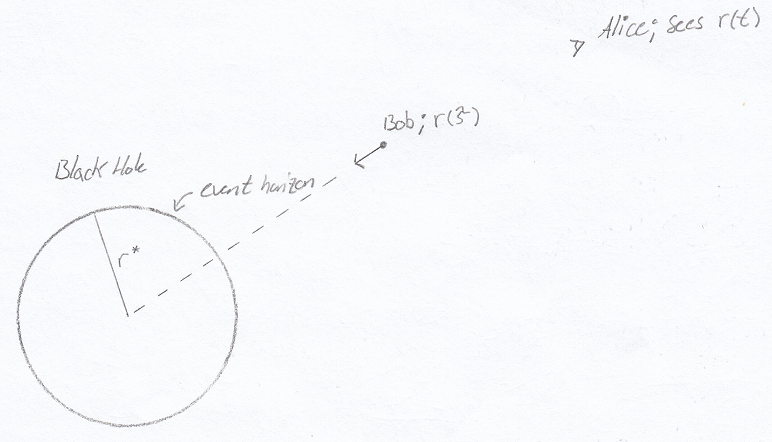 Alice; sees r(t)
Bob; r(τ)
Black Hole
event horizon
r*